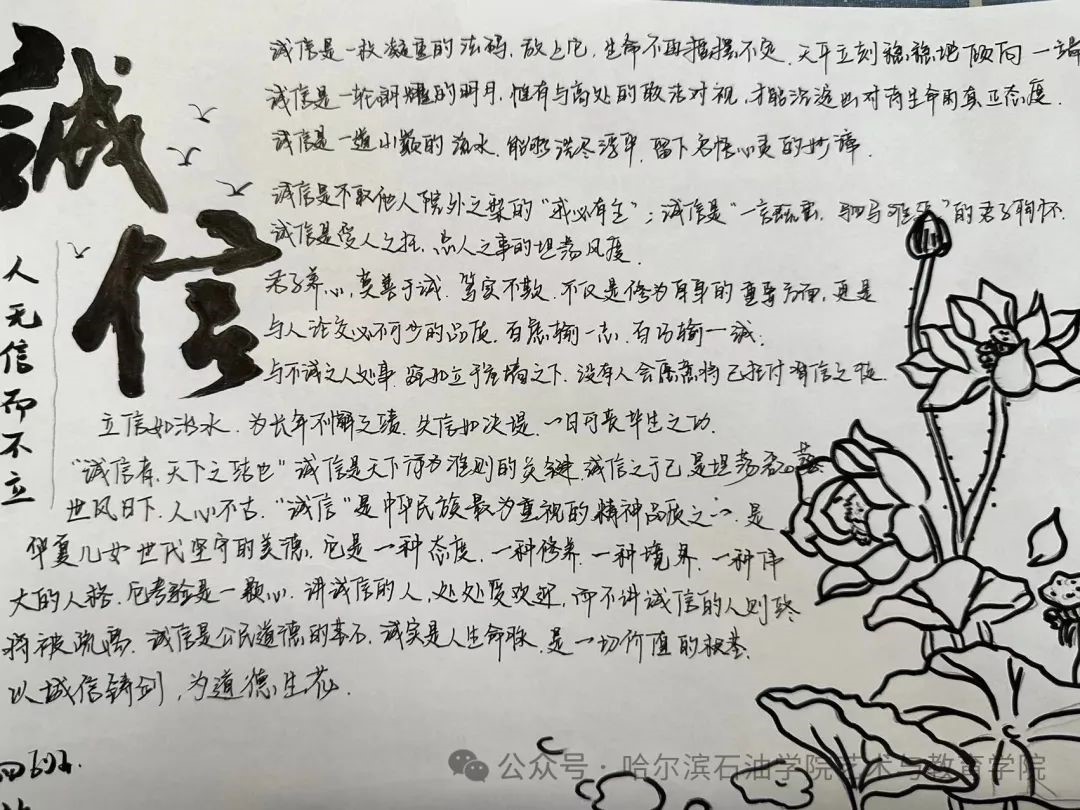 誠信
人无信而不立
诚信是一枚凝重的法码,放上它,生命不再摇摆不定,天平立刻稳稳地倾向一端
诚信是一轮明耀的明月,惟有与高处的皎洁对视,才能沉淀出对待生命的真正态度.
诚信是一道山巅的流水,能够洗尽浮华,留下启悟心灵的妙谛.
诚信是不取他人院外之梨的“我心有主”;诚信是“一言既出,驷马难追”的君子胸怀.
诚信是受人之托,忠人之事的坦荡风度.
君子养心,莫善于诚.笃实不欺,不仅是修为自身的重要方面,更是
与人论交必不可少的品质.百虑输一忘,百巧输一诚.
与不诚之人处事,同如立于危墙之下.没有人会愿意将己托付背信之徒.
立信如治水,为长年不懈之绩.失信如决堤,一日可丧毕生之功.
“诚信者,天下之结也”诚信是天下行为准则的关键.诚信之于己是坦荡
世风日下,人心不古.“诚信”是中华民族最为重视的精神品质之一.是
华夏儿女世代坚守的美德.它是一种态度,一种修养,一种境界,一种伟
大的人格.它考验是一颗心.讲诚信的人,处处受欢迎,而不讲诚信的人则终
将被疏离.诚信是公民道德的基石.诚实是人生命脉.是一切价值的根基.
以诚信铸剑,为道德生花.
四班.
公众号·哈尔滨石油学院艺术与教育学院